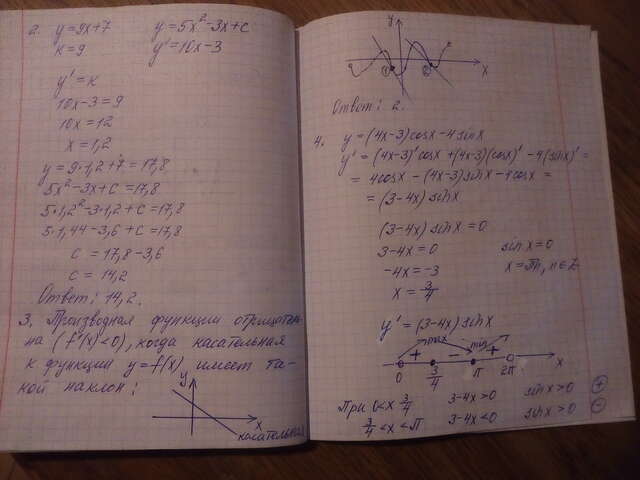 2. y=9x+7 y=5x²-3x+c
k=9 y'=10x-3
y'=k
10x-3=9
10x=12
x=1,2
y=9·1,2+7=17,8
5x²-3x+c=17,8
5·1,2²-3·1,2+c=17,8
5·1,44-3,6+c=17,8
c=17,8-3,6
c=14,2
Ответ: 14,2.
3. Производная функции отрицатель-
на (f'(x)<0), когда касательная
к функции y=f(x) имеет та-
кой наклон:
y
x
касательная
y
① ②
x
Ответ: 2.
4. y=(4x-3)cosx-4sinx
y'=(4x-3)'cosx+(4x-3)(cosx)'-4(sinx)'=
=4cosx-(4x-3)sinx-4cosx=
=(3-4x)sinx
(3-4x)sinx=0
3-4x=0 sinx=0
-4x=-3 x=πn, n∈Z
x=3/4
y'=(3-4x)sinx
max min
+ - +
0 3/4 π 2π x
При 0<x 3/4 3-4x>0 sinx>0 +
3/4<x<π 3-4x<0 sinx>0 -